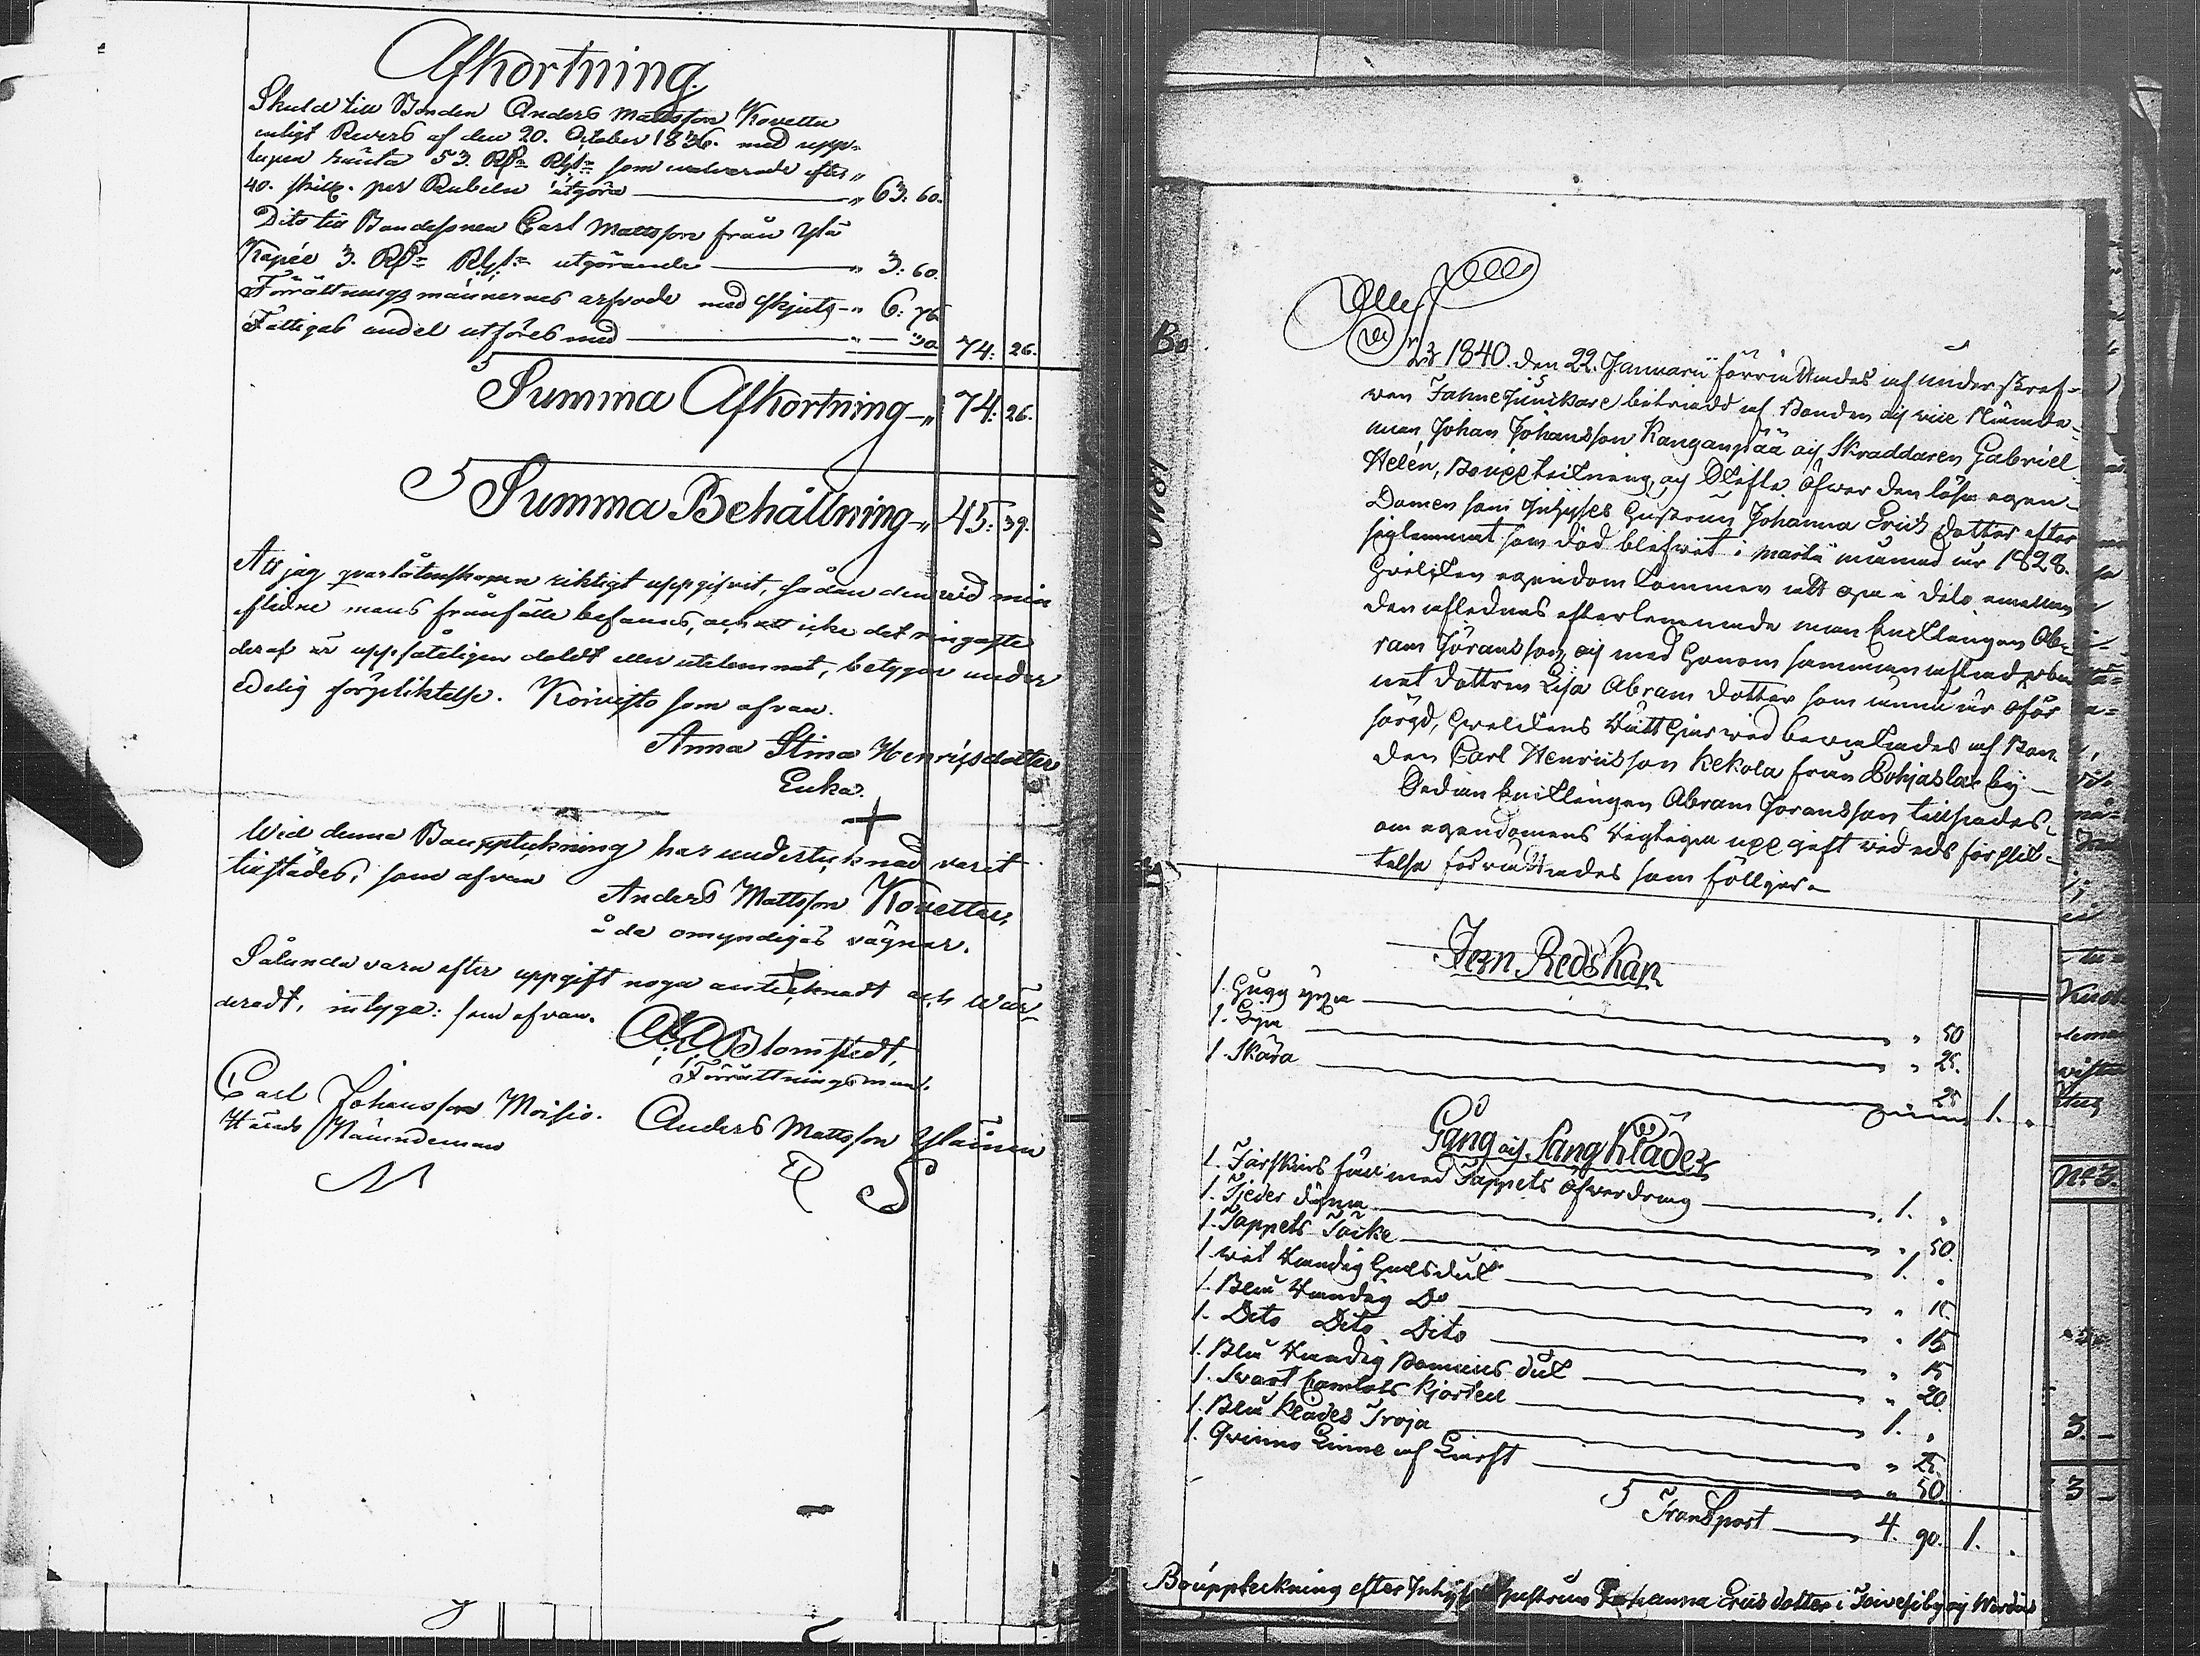 Afkortning.
Skuld till Bonden Anders Mattsson Kovettu
enligt Revers af den 20. October 1836. med upp-
lupen ränta 53. Rß Rgs som evalverade efter
40. skill. per Rubeln utgöra " 63. 60.
Dito till Bondesonen Carl Mattsson från Ylä
Kapée 3. Rß Rgs utgörande " 3. 60.
Förrättningsmännernes arfvode med skjuts " 6. 76.
Fattigas andel utföres med " 30. 74. 26.
Summa Afkortning " 74. 26.
Summa Behållning " 45. 39.
Att jag qvarlåtenskapen riktigt uppgifvit, sådan den vid min
aflidne mans frånfälle befanns, och att icke det ringaste
deraf är uppsåteligen doldt eller utelemnat, betygar under
edelig förpliktelse. Koivisto som ofvan.
Anna Stina Henricsdotter
Enka.
Wid denna Bouppteckning har undertecknad varit
tillstädes; som ofvan
Anders Mattsson Kovettu,
å de omyndigas vägnar.
Sålunda vara efter uppgift noga antecknadt och wär-
deradt, intyga: som ofvan.
Blomstedt,
Förrättningsman.
Carl Johansson Moisio.
Härads Nämndeman
Anders Mattsson Yläinen
1840. den 22. Januarii förrättades af under skref-
wen Fahnejunkare biträdd af Bonden och vice Nämde-
man Johan Johansson Kanganpää och Skraddaren Gabriel
Helén, Bouppteckning och öfwer den lösa egen-
Domen som Inhyses hustrun Johanna Erics dotter efter
sig lemnat som död blefwit i martii månad år 1828.
Hwilken egendom kommer att i delo emellan
den aflednas efterlemnade man Enklingen Ab-
ram Göransson och med honom sammanaflade
dottren Lisa Abrams dotter som ännu är oför
sörgd, hwilkens Rätt härwid bewakades af Bon
den Carl Henricsson Kekola från Pohjaslax by
Sedan Enklingen Abram Göransson tillsades
om egendomens Rigtiga uppgift wid eds förplik-
telse förrättades som fölljer
Jern Redskap
1. Hugg yxa " 50
1. Lya " 25.
1. Skära " 25
1. "
Gång och Sängkläder
1. Fårskins fäll med Tappets Öfwerdrag 1. "
1. Fjeder Dyna " 50.
1. Tappets Täcke 1. "
1. wit Randig Halsduk " 15
1. Blå Randig Do " 15
1. Dito Dito Dito " 15
1. Blå Randig Bomuls duk " 20
1. Svart Camlots Kjortell 1. "
1. Blå Klädes Tröja " 25.
1. Qvinno Linne af Lärft " 50.
Transport 4. 90. 1. "
Bouppteckning efter Inhyses hustrun Johanna Erics dotter i by och
No 3.
3. -
3 -